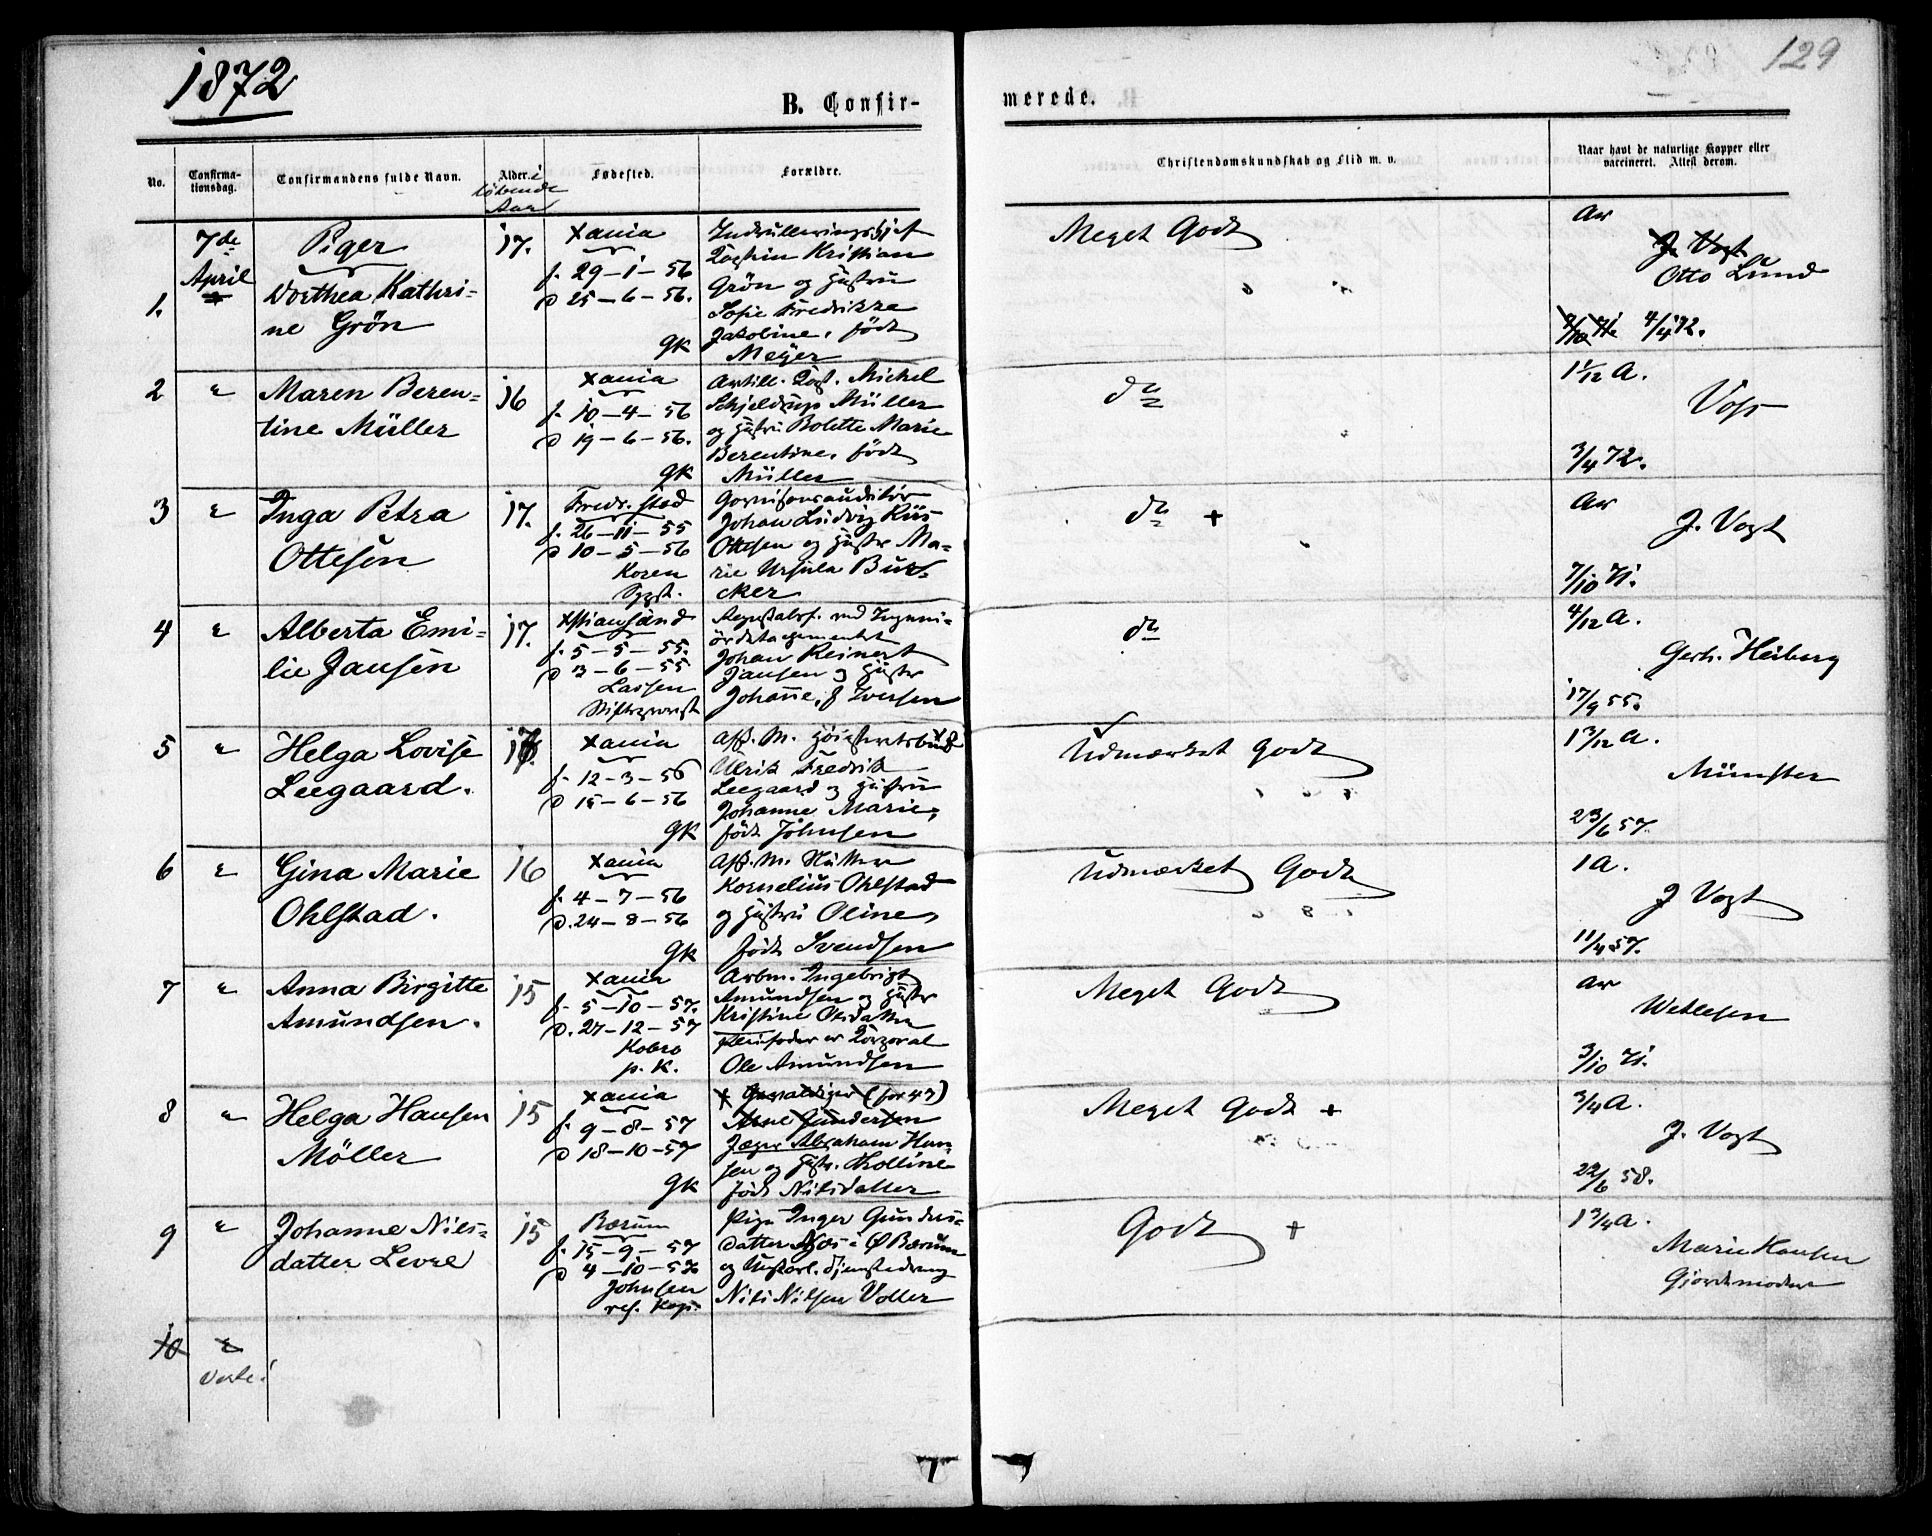 1872
129
B. Confir-
merede.
No.
Confirma-
tionsdag.
Confirmandens fulde Navn.
Alder. i
løbende
Aar
Fødested.
Forældre.
Christendomskundskab og Flid m. v.
Naar havt de naturlige Kopper eller
vaccineret. Attest derom.
7de
April
Piger
1.
Dorthea Kathri-
ne Grön
17.
Xania
f. 29-1-56
d 25-6-56.
GK
Kristian
Grön og Hustru
Sofie Fredrikke
Jakobine, födt
Meyer
Meget Godt
ar
J. Vogt
Otto Lund
4/4 72.
2
"
Maren Beren-
tine Müller
16
Xania
f. 10-4-56
d 19-6-56.
GK
Artill. Michel
Schjeldrup Müller
og Hustru Bolette Marie
Berentine, födt
Müller
do
1 1/12 A.
Voss
3/4 72.
3
"
Inga Petra
Ottesen
17.
Fredr.stad
f. 26-11-55
d 10-5-56
Koren
Johan Ludvig
Ottesen og Hustr Ma-
rie Ursula
cker
do +
ar
J. Vogt
7/10 71.
4
"
Alberta Emi-
lie Jansen
17.
Xstiansand
f. 5-5-55.
d 3-6-55
Lassen
Stiftsprovst
Johan Reinert
Jansen og Hustr
Johanne, f Iversen
do
4/12 A.
Gerh. Heiberg
17/9 55.
5
"
Helga Lovise
Leegaard.
Xania
f. 12-3-56
d 15-6-56
GK
Ulrik Fredrik
Leegaard og Hustru
Johanne Marie,
födt Johnsen
Udmærket Godt
1 3/12 A.
Münster
23/6 57.
6
"
Gina Marie
Ohlstad.
16
Xania
f. 4-7-56
d. 24-8-56
GK
Kornelius Ohlstad
og Hustru Oline,
födt Svendsen
Udmærket Godt
1 A.
J Vogt
11/4 57.
7
"
Anna Birgitte
Amundsen.
15
Xania
f. 5-10-57.
d. 27-12-57
Kobro
p. K.
Arbm. Ingebrigt
Amundsen og Hustr
Kristine Olsdatter
Pleiefader er Korporal
Ole Amundsen
Meget Godt
ar
Wetlesen
3/10 71.
8
"
Helga Hansen
Möller
15
Xania
f. 9-8-57
d 18-10-57
GK
(for 47)
Arne Gundersen
Jæger Abraham Han-
sen og Hustr.
födt Nilsdatter
Meget Godt +
3/4 A.
J. Vogt
22/6 58.
9
"
Johanne Nils-
datter Levre
15
Bærum
f. 15-9-57
d 4-10-57
Johnsen
res. Kap.
Pige Inger Gunders-
datter Næs i Ø Bærum
og Ungkarl.
Nils Nilsen Voller
Godt +
1 3/4 A.
Marie Hansen
Gjordemoder
10
"